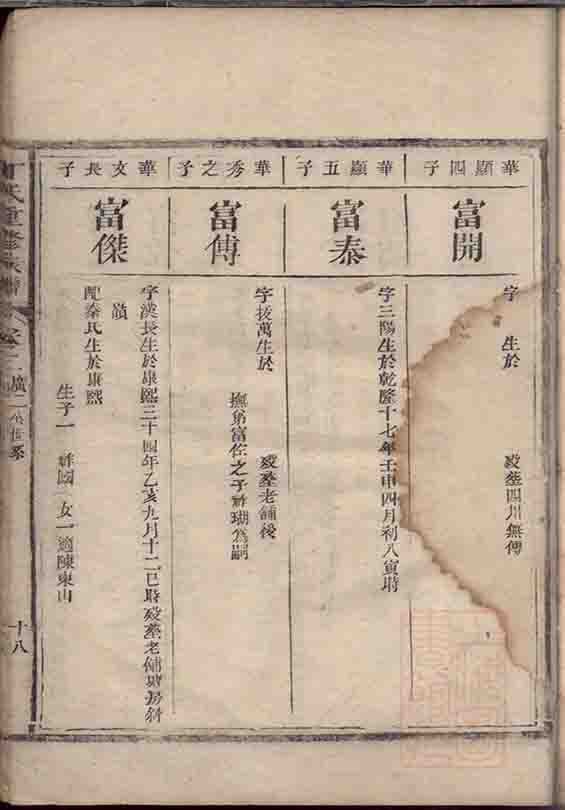 華顯四子
富開
字 生於 歿葬四川無傳
華顯五子
富泰
字三陽生於乾隆十七年壬申四月初八寅時
華秀之子
富傳
字拔萬生於 歿葬老舖後
撫弟富佐之子祥瑚為嗣
華文長子
富傑
字漢長生於康熙三十四年乙亥九月十二巳時歿葬老舖塘房斜
嶺
配秦氏生於康熙
生子一 祥國 女一適陳東山
丁氏重修族譜 卷之二 廣二公世系 十八